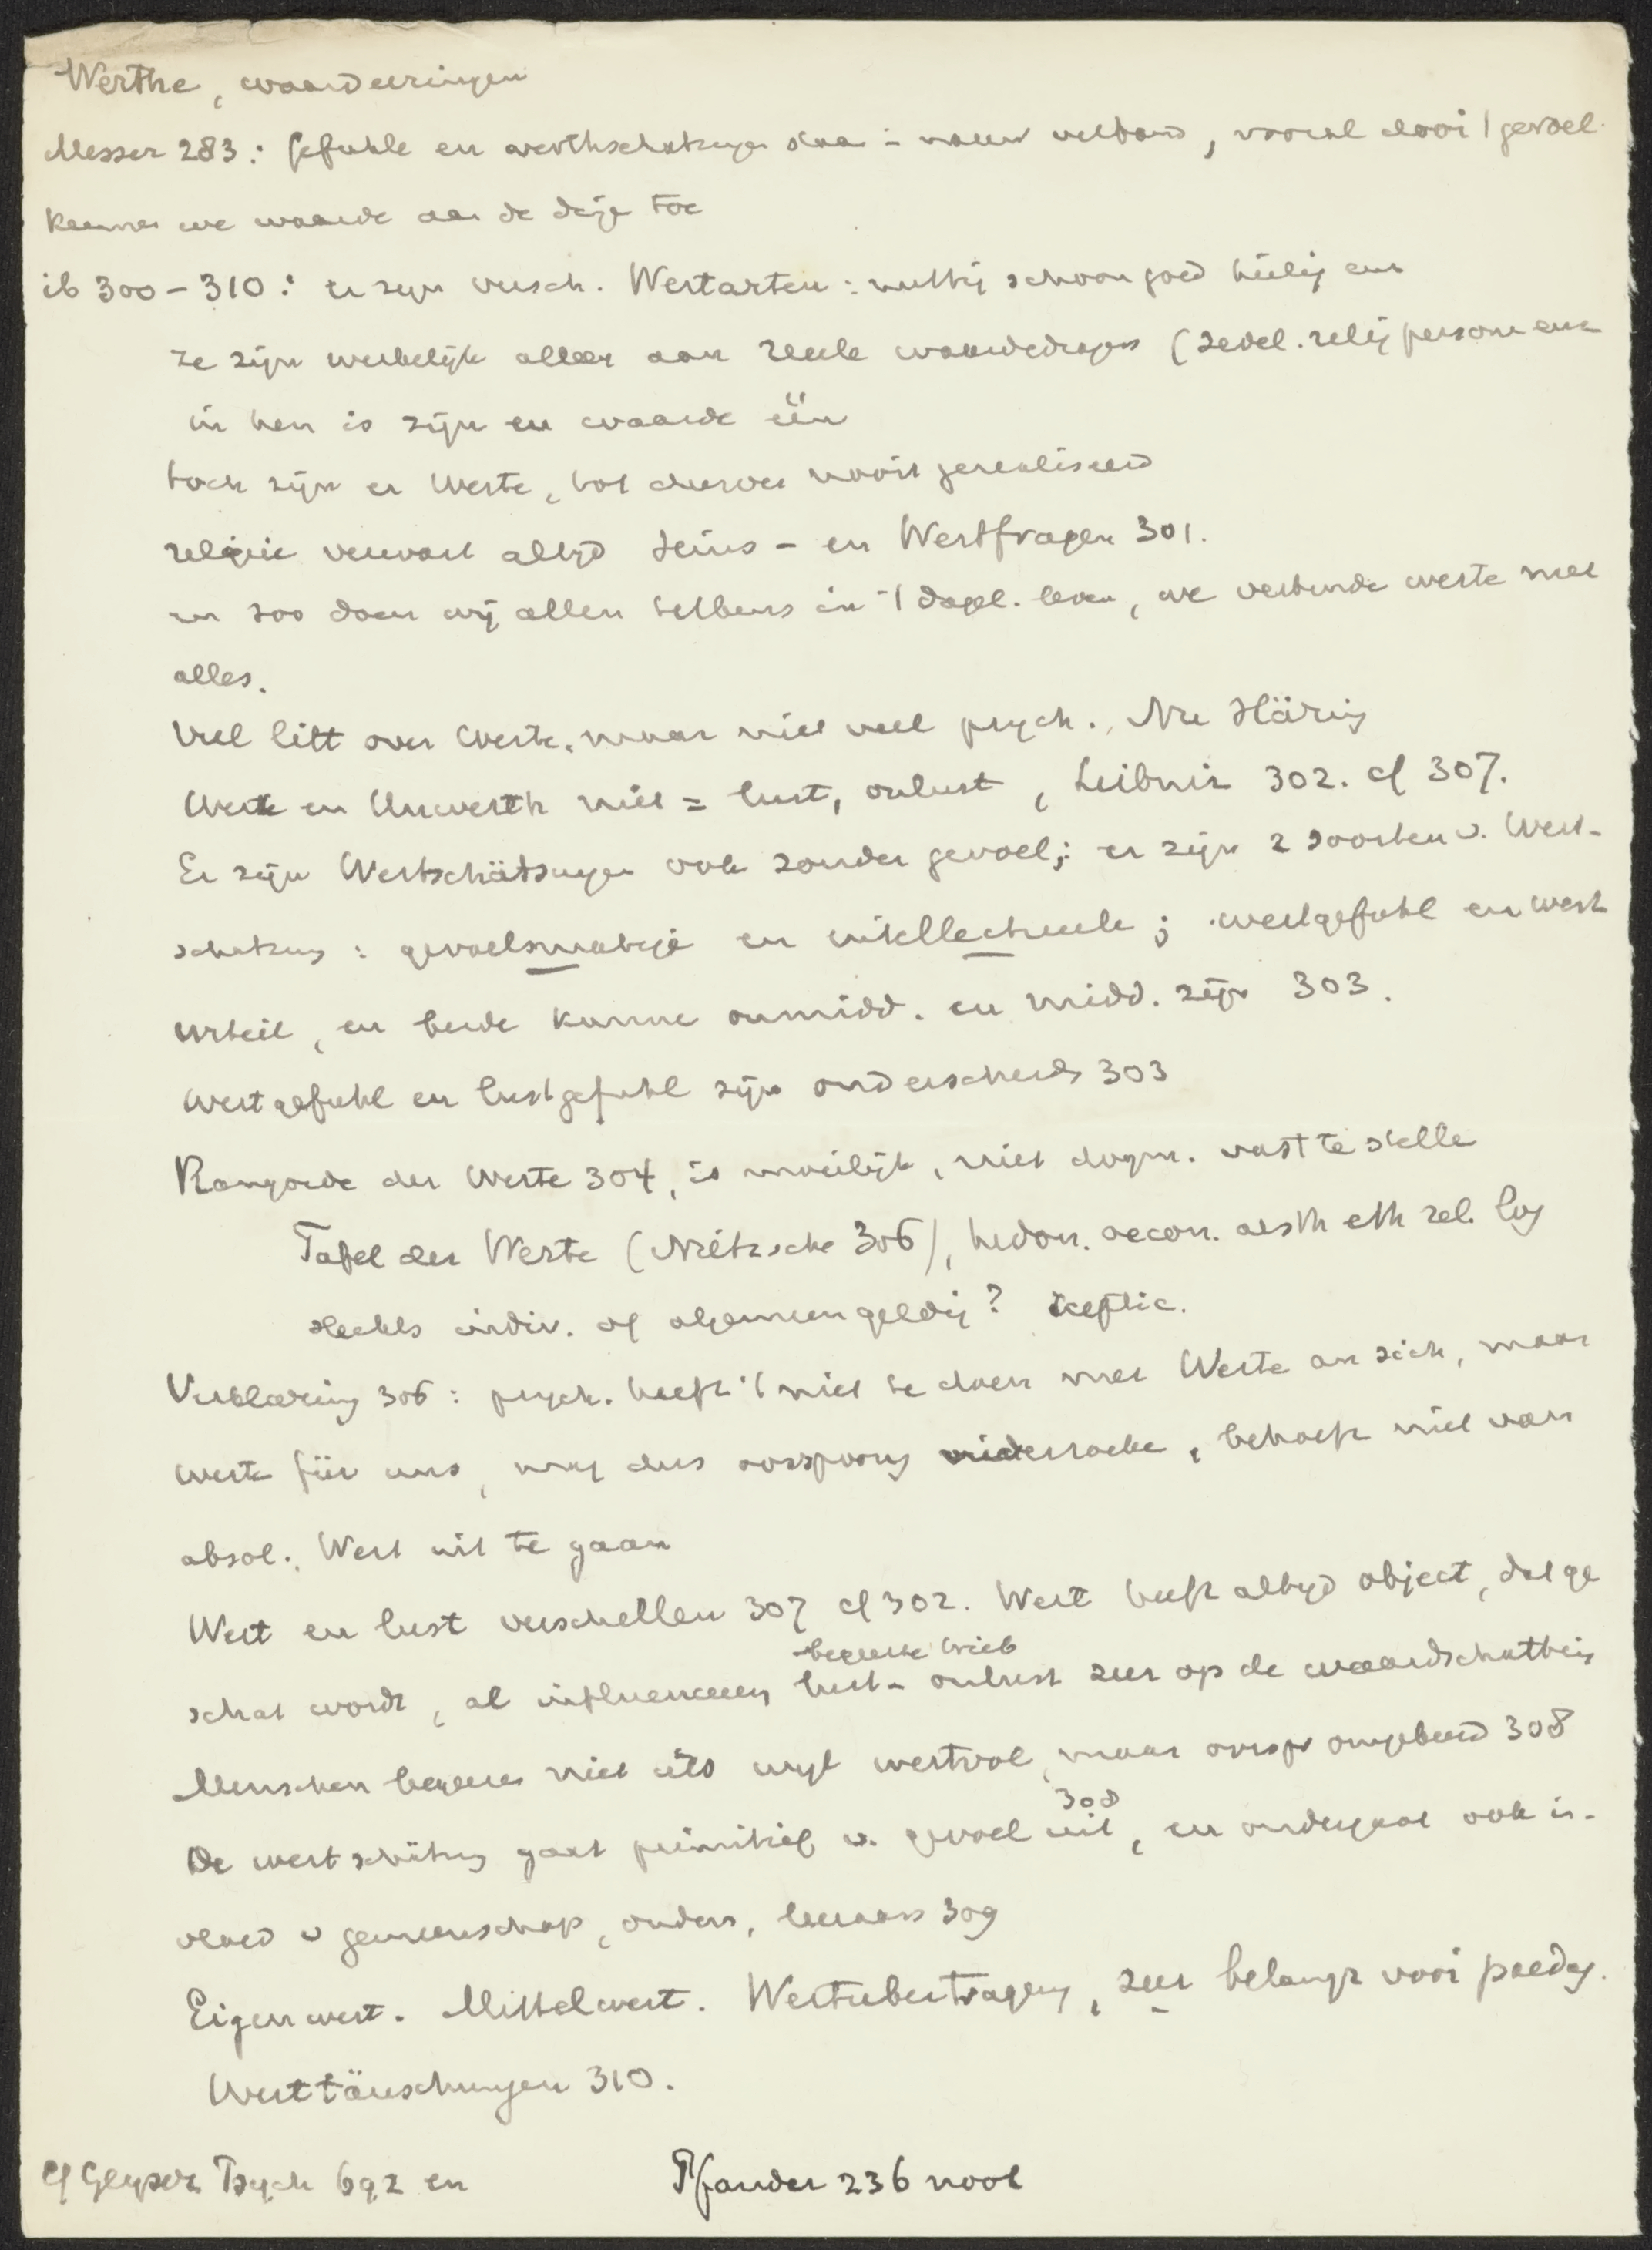 Werthe, waardeeringen
Messer 283: Gefuhle en werthschatzungen staan in nauw verband, vooral door 't gevoel
kennen we waarde aan de dingen toe
ib 300-310: er zijn versch. Wertarten: nuttig schoon goed heilig enz
ze zijn werkelijk alleen aan reele waardedragers (zedel. relig personen enz
in hen is zijn en waarde één
toch zijn er Werte, tot dusver nooit gerealiseerd
religie verwart altijd Seins- en Wertfragen 301.
en zoo doen wij allen telkens in 't dagel. leven, we verbinden werte met
alles.
Veel litt over Werte, maar niet veel psych., Nu Häring
Werte en Unwerth niet = lust, onlust, Leibniz 302. cf 307.
Er zijn Wertschätzungen ook zonder gevoel; er zijn 2 soorten v. Wert-
schatzung: gevoelsmatige en intellectueele; wertgefuhl en wert
urteil, en beide kunnen onmidd. en midd. zijn 303.
Wertgefuhl en lustgefuhl zijn onderscheiden 303
Rangorde der Werte 304, is moeilijk, niet dogm. vast te stellen
Tafel der Werte (Nietzsche 306), hedon. oecon. aesth eth rel. log
slechts indiv. of algemeen geldig? sceptic.
Verklaring 306: psych. heeft 't niet te doen met Werte an sich, maar
werte für uns, mag dus oorsprong onderzoeken, behoeft niet van
absol. Wert uit te gaan
Wert en lust verschillen 307 cf 302. Wert heeft altijd object, dat ge
schat wordt, al influenceeren lust- onlust zeer op de waardschatting
begeerte trieb
Menschen begeeren niet iets wijl wertvol, maar oorspr omgekeerd 308
De wertschätzung gaat primitief v. gevoel uit 308, en ondergaat ook in-
vloed v gemeenschap, ouders, leeraars 309
Eigenwert. Mittelwert. Wertubertragung, zeer belangr voor paedag.
Werttäuschungen 310.
cf Geyser Psych 692 en Pfander 236 noot